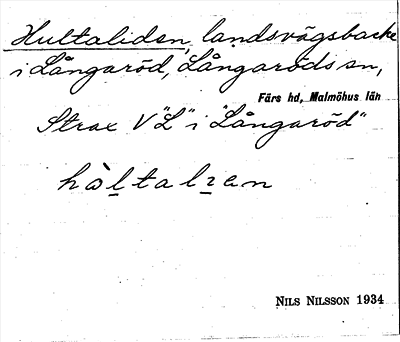 Hultaliden, landsvägsbacke
i Långaröd, Långaröds sn,
Färs hd, Malmöhus län
Strax V "L" i "Långaröd"
NILS NILSSON 1934